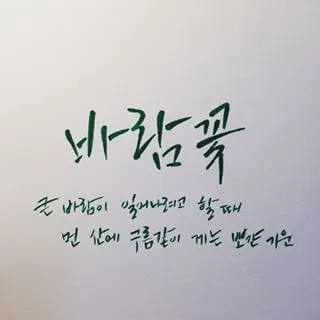 바람꽃
큰 바람이 일어나려고 할 때
먼 산에 구름같이 끼는 뽀얀 기운